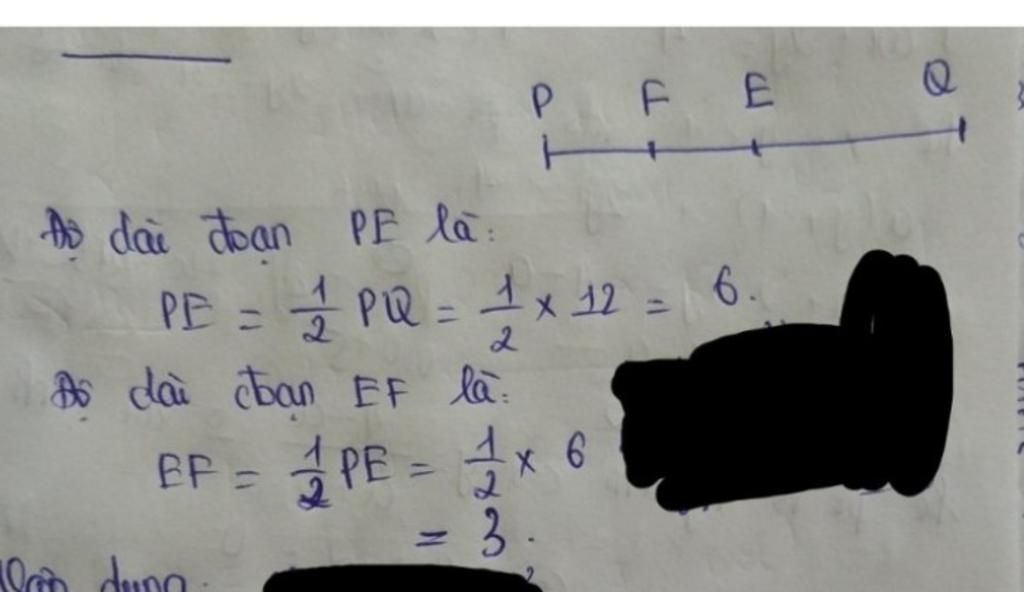 P F E Q
Độ dài đoạn PE là:
PE = 1/2 PQ = 1/2 × 12 = 6.
Độ dài đoạn EF là:
EF = 1/2 PE = 1/2 × 6
= 3.
dụng.